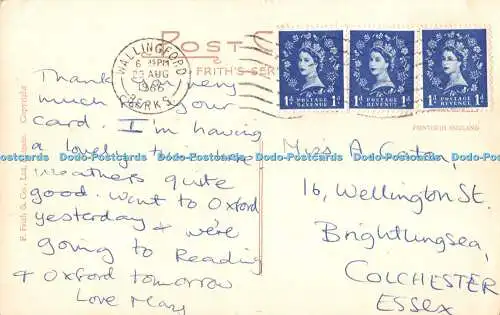 POST C
FRITH'S SER
WALLINGFORD
6 45PM
23 AUG
1966
BERKS
1D POSTAGE REVENUE 1D
1D POSTAGE REVENUE 1D
1D POSTAGE REVENUE 1D
PRINTED IN ENGLAND
F. Frith & Co., Ltd., Reigate. Copyright
Thank very
much for your
card. I'm having
a lovely time
weathers quite
good. Went to Oxford
yesterday & we're
going to Reading
& Oxford tomorrow
Love Mary
Miss A
16, Wellington St.
Brightlingsea,
COLCHESTER
ESSEX
Da-Postcards www.Da-Postcards www.Da-Postcards www.Da-Postcards www.Da-Postcards